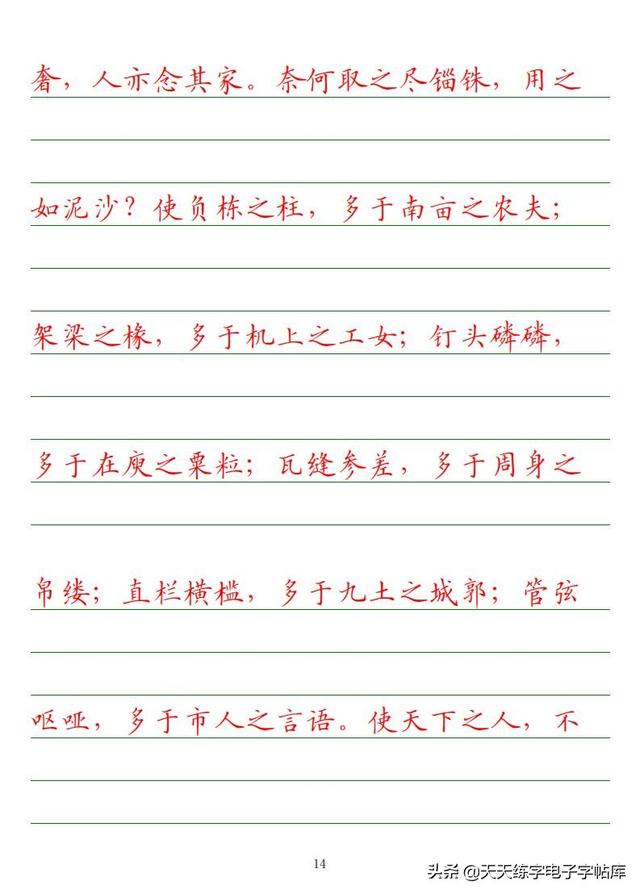 奢，人亦念其家。奈何取之尽锱铢，用之
如泥沙？使负栋之柱，多于南亩之农夫；
架梁之椽，多于机上之工女；钉头磷磷，
多于在庾之粟粒；瓦缝参差，多于周身之
帛缕；直栏横槛，多于九土之城郭；管弦
呕哑，多于市人之言语。使天下之人，不
14
头条 @天天练字电子字帖库